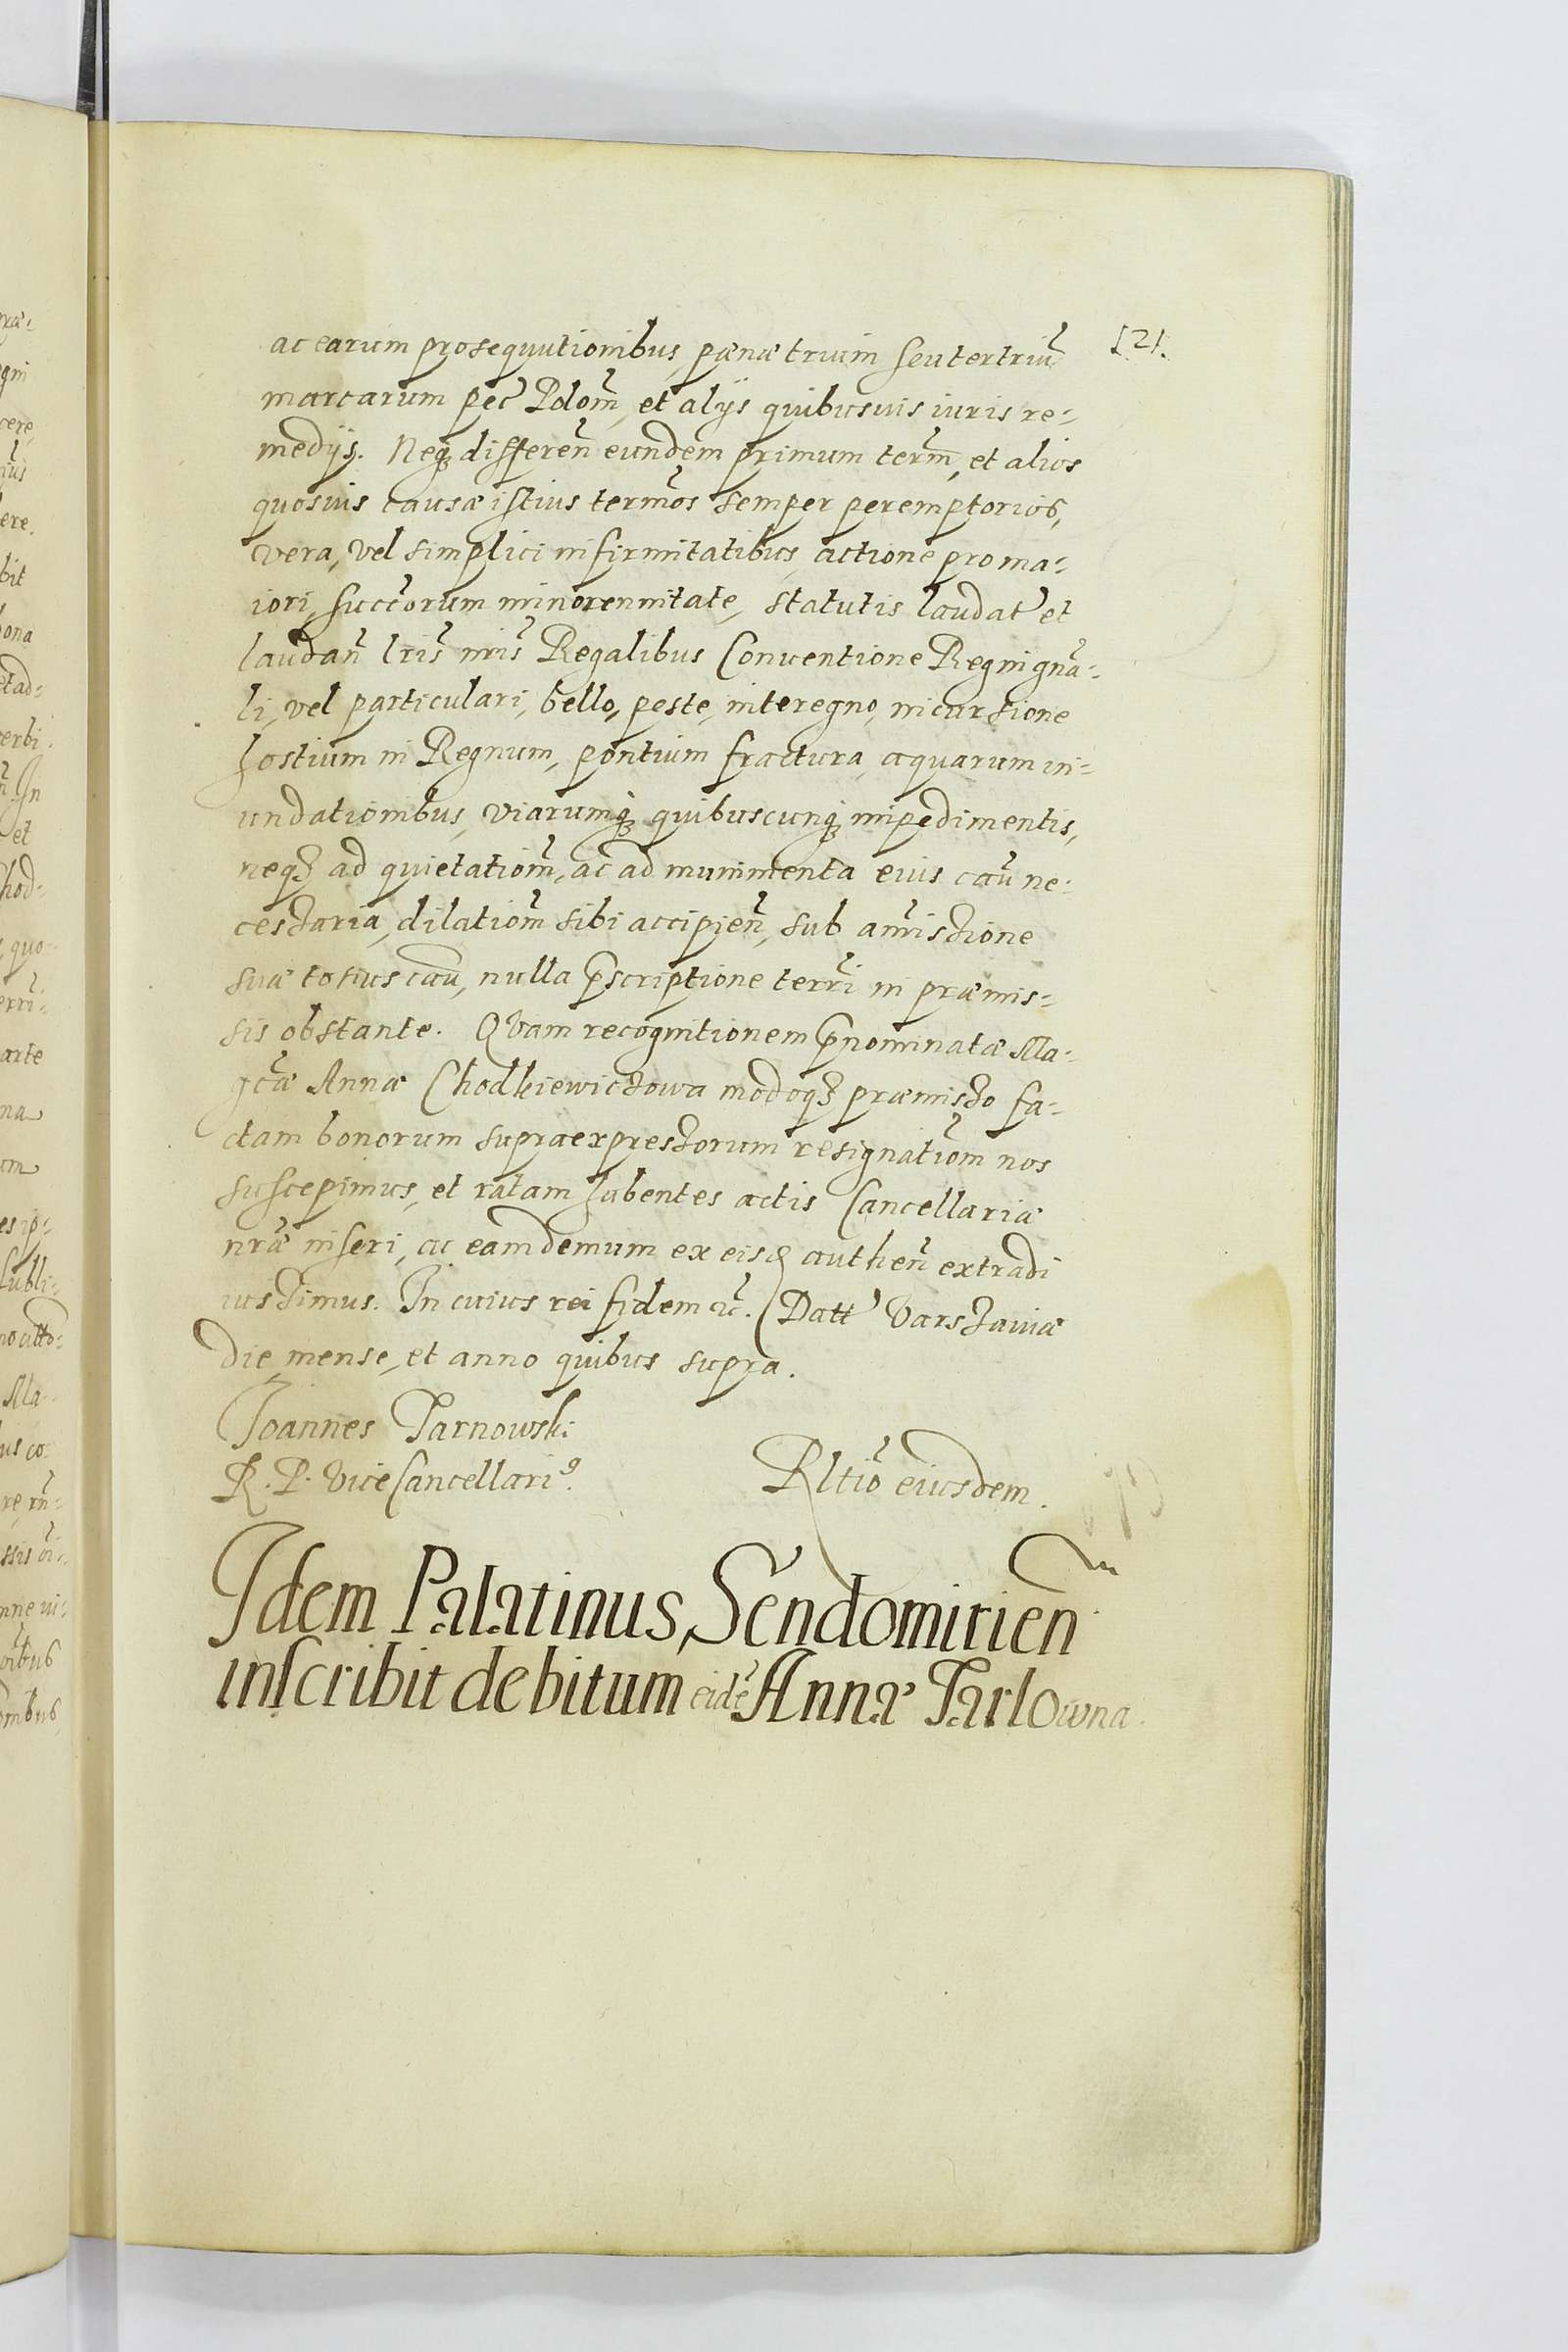 121.
ac earum prosequutionibus, pænæ trium seu ter triũ
marcarum pec̃ Pdom̃, et alijs quibusuis iuris re-
medijs. Neq; differeñ eundem primum term̃, et alios
quosuis causæ istius termõs semper peremptorios,
vera, vel simplici infirmitatibus, actione pro ma-
iori, succ̃orum minorennitate, statutis laudat̃ et
laudañ lris̃ nris̃ Regalibus Conuentione Regni gnã-
li, vel particulari, bello, peste, interegno, incursione
hostium in Regnum, pontium fractura, aquarum in-
undationibus, viarumq; quibuscunq; impedimentis,
neq; ad quietatiom̃, ac ad munimenta eius caũ ne-
cessaria, dilatiom̃ sibi accipieñ, sub amissione
suæ totius caũ, nulla p̃scriptione terri in præmis-
sis obstante. Quam recognitionem p̃nominatæ Ma-
gcæ̃ Annæ Chodkiewiczowa modoq; præmisso fa-
ctam bonorum supraexpressorum resignatiom̃ nos
suscepimus, et ratam habentes actis Cancellariæ
nræ̃ inseri, ac eam demum ex eisd autheñ extradi
iussimus. In cuius rei fidem &c̃. Datt̃ Varssauiæ
die, mense, et anno quibus supra.
Joannes Tarnowski
R. P. Vice Cancellari9.
Rltiõ eiusdem.
Idem Palatinus Sendomirień
inscribit debitum eidẽ Annæ Tarlowna.